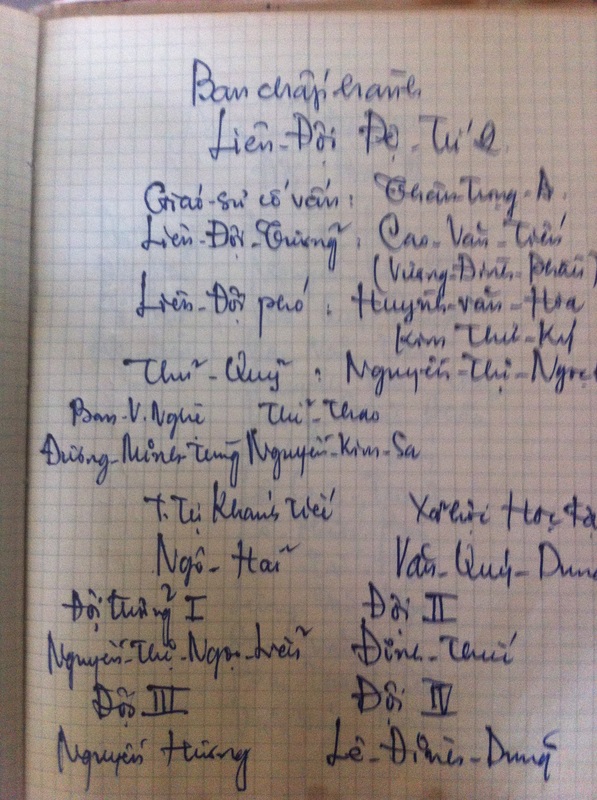 Ban chấp hành
Liên-Đội Đệ-Tứ 2
Giáo-sư cố vấn: Trọng-A
Liên-Đội-Trưởng: Cao-Văn-Tiến
(Vương-Đình-
Liên-Đội phó: Huỳnh-văn-Hòa
Kim Thu-
Thủ-Quỹ: Nguyễn-Thị-Ngọc
Ban-V.Nghệ Thể-Thao
Dương-Minh-Tùng Nguyễn-Kim-Sa
T.Tự Khánh tiết Xã hội Học
Ngô-Hải Văn-Quý-Dung
Đội trưởng I Đội II
Nguyễn-Thị-Ngọc-Liên Đinh-
Đội III Đội IV
Nguyễn Hương Lê-Đình-Dũng